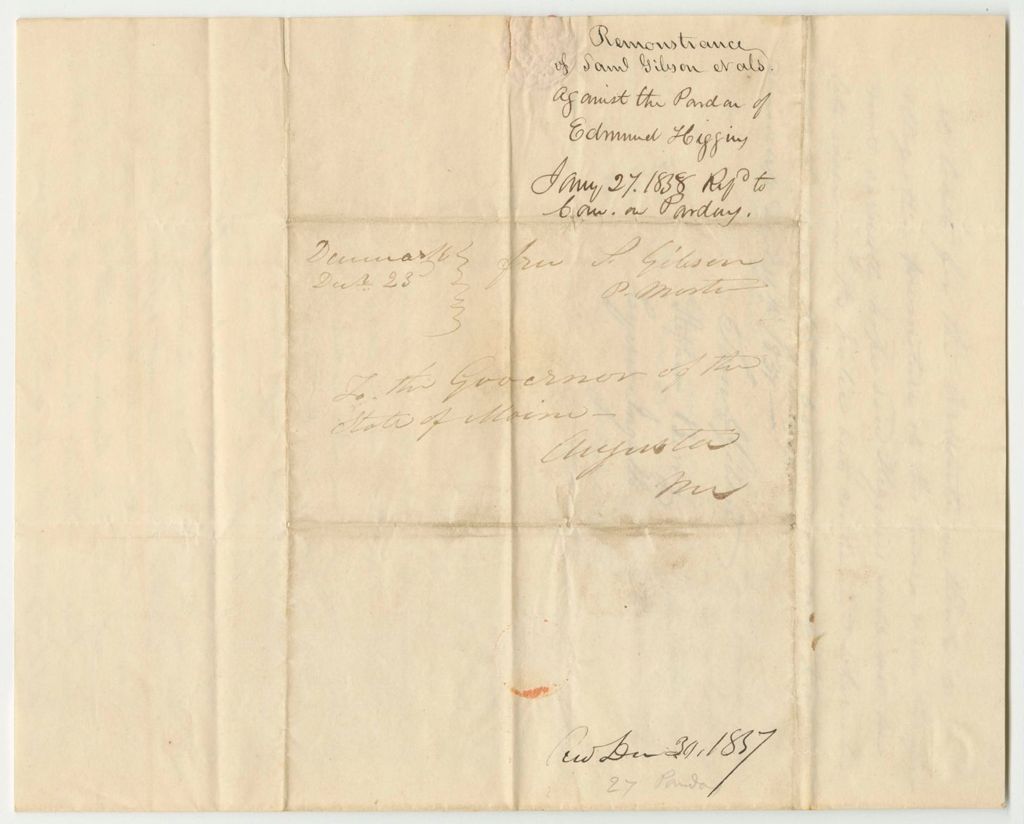 Remonstrance
of Saml Gibson et als.
Against the Pardon of
Edmund Higgins
Jany 27. 1838 Refd to
Com. on Pardons.
Denmark
Dec. 23
free S. Gibson
P. Master
To. the Governor of the
State of Maine -
Augusta
Me
Dec 30, 1837
27 Pardon